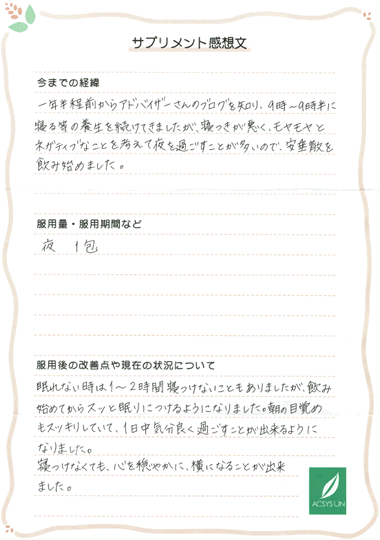 サプリメント感想文
今までの経緯
一年半程前からアドバイザーさんのブログを知り、9時〜9時半に
寝る等の養生を続けてきましたが、寝つきが悪く、モヤモヤと
ネガティブなことを考えて夜を過ごすことが多いので、安亜散を
飲み始めました。
服用量・服用期間など
夜 1包
服用後の改善点や現在の状況について
眠れない時は1〜2時間寝つけないこともありましたが、飲み
始めてからスッと眠りにつけるようになりました。朝の目覚め
もスッキリしていて、1日中気分良く過ごすことが出来るように
なりました。
寝つけなくても、心を穏やかに、横になることが出来
ました。
ACSYS UN